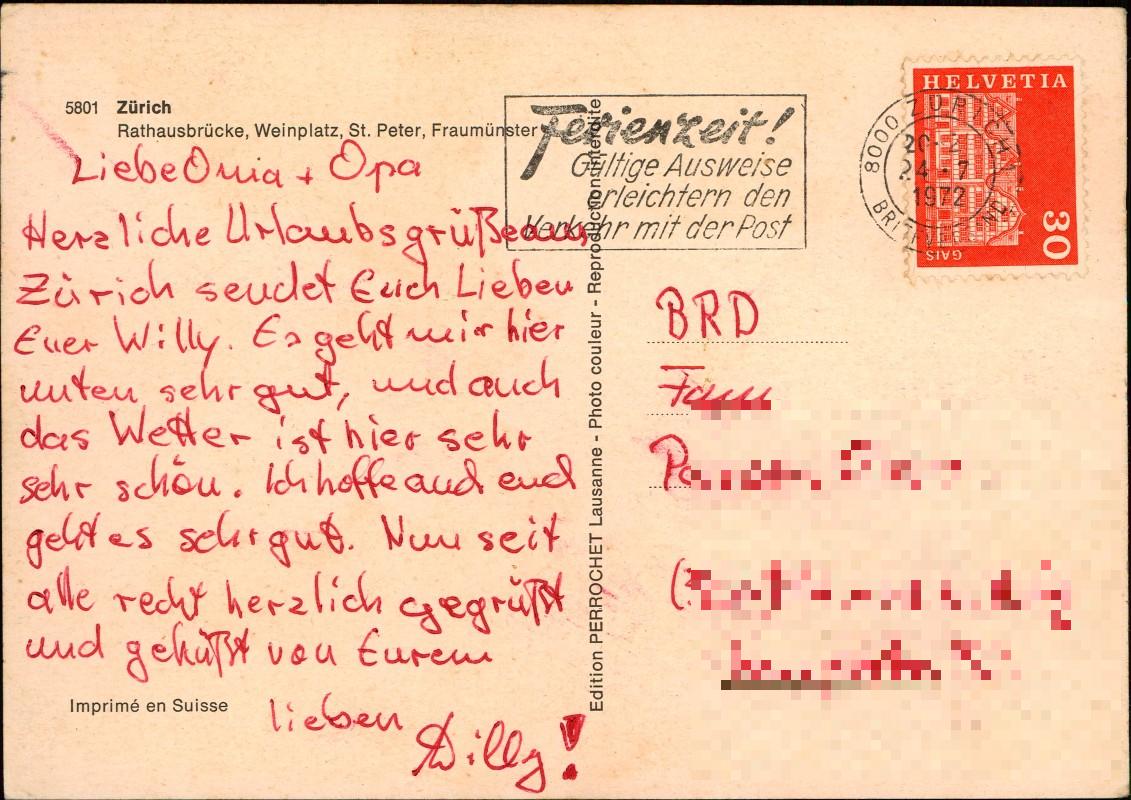 5801 Zürich
Rathausbrücke, Weinplatz, St. Peter, Fraumünster
Liebe Oma + Opa
Herzliche Urlaubsgrüße aus
Zürich sendet Euch Lieben
Euer Willy. Es geht mir hier
unten sehr gut, und auch
das Wetter ist hier sehr
sehr schön. Ich hoffe auch euch
geht es sehr gut. Nun seit
alle recht herzlich gegrüßt
und geküßt von Eurem
lieben
Willy!
Imprimé en Suisse
Edition PERROCHET Lausanne - Photo couleur - Reproduction interdite
Ferienzeit!
Gültige Ausweise
erleichtern den
Verkehr mit der Post
8000 ZÜRICH
24.-7
1972
HELVETIA
30
GAIS
BRD
Fam